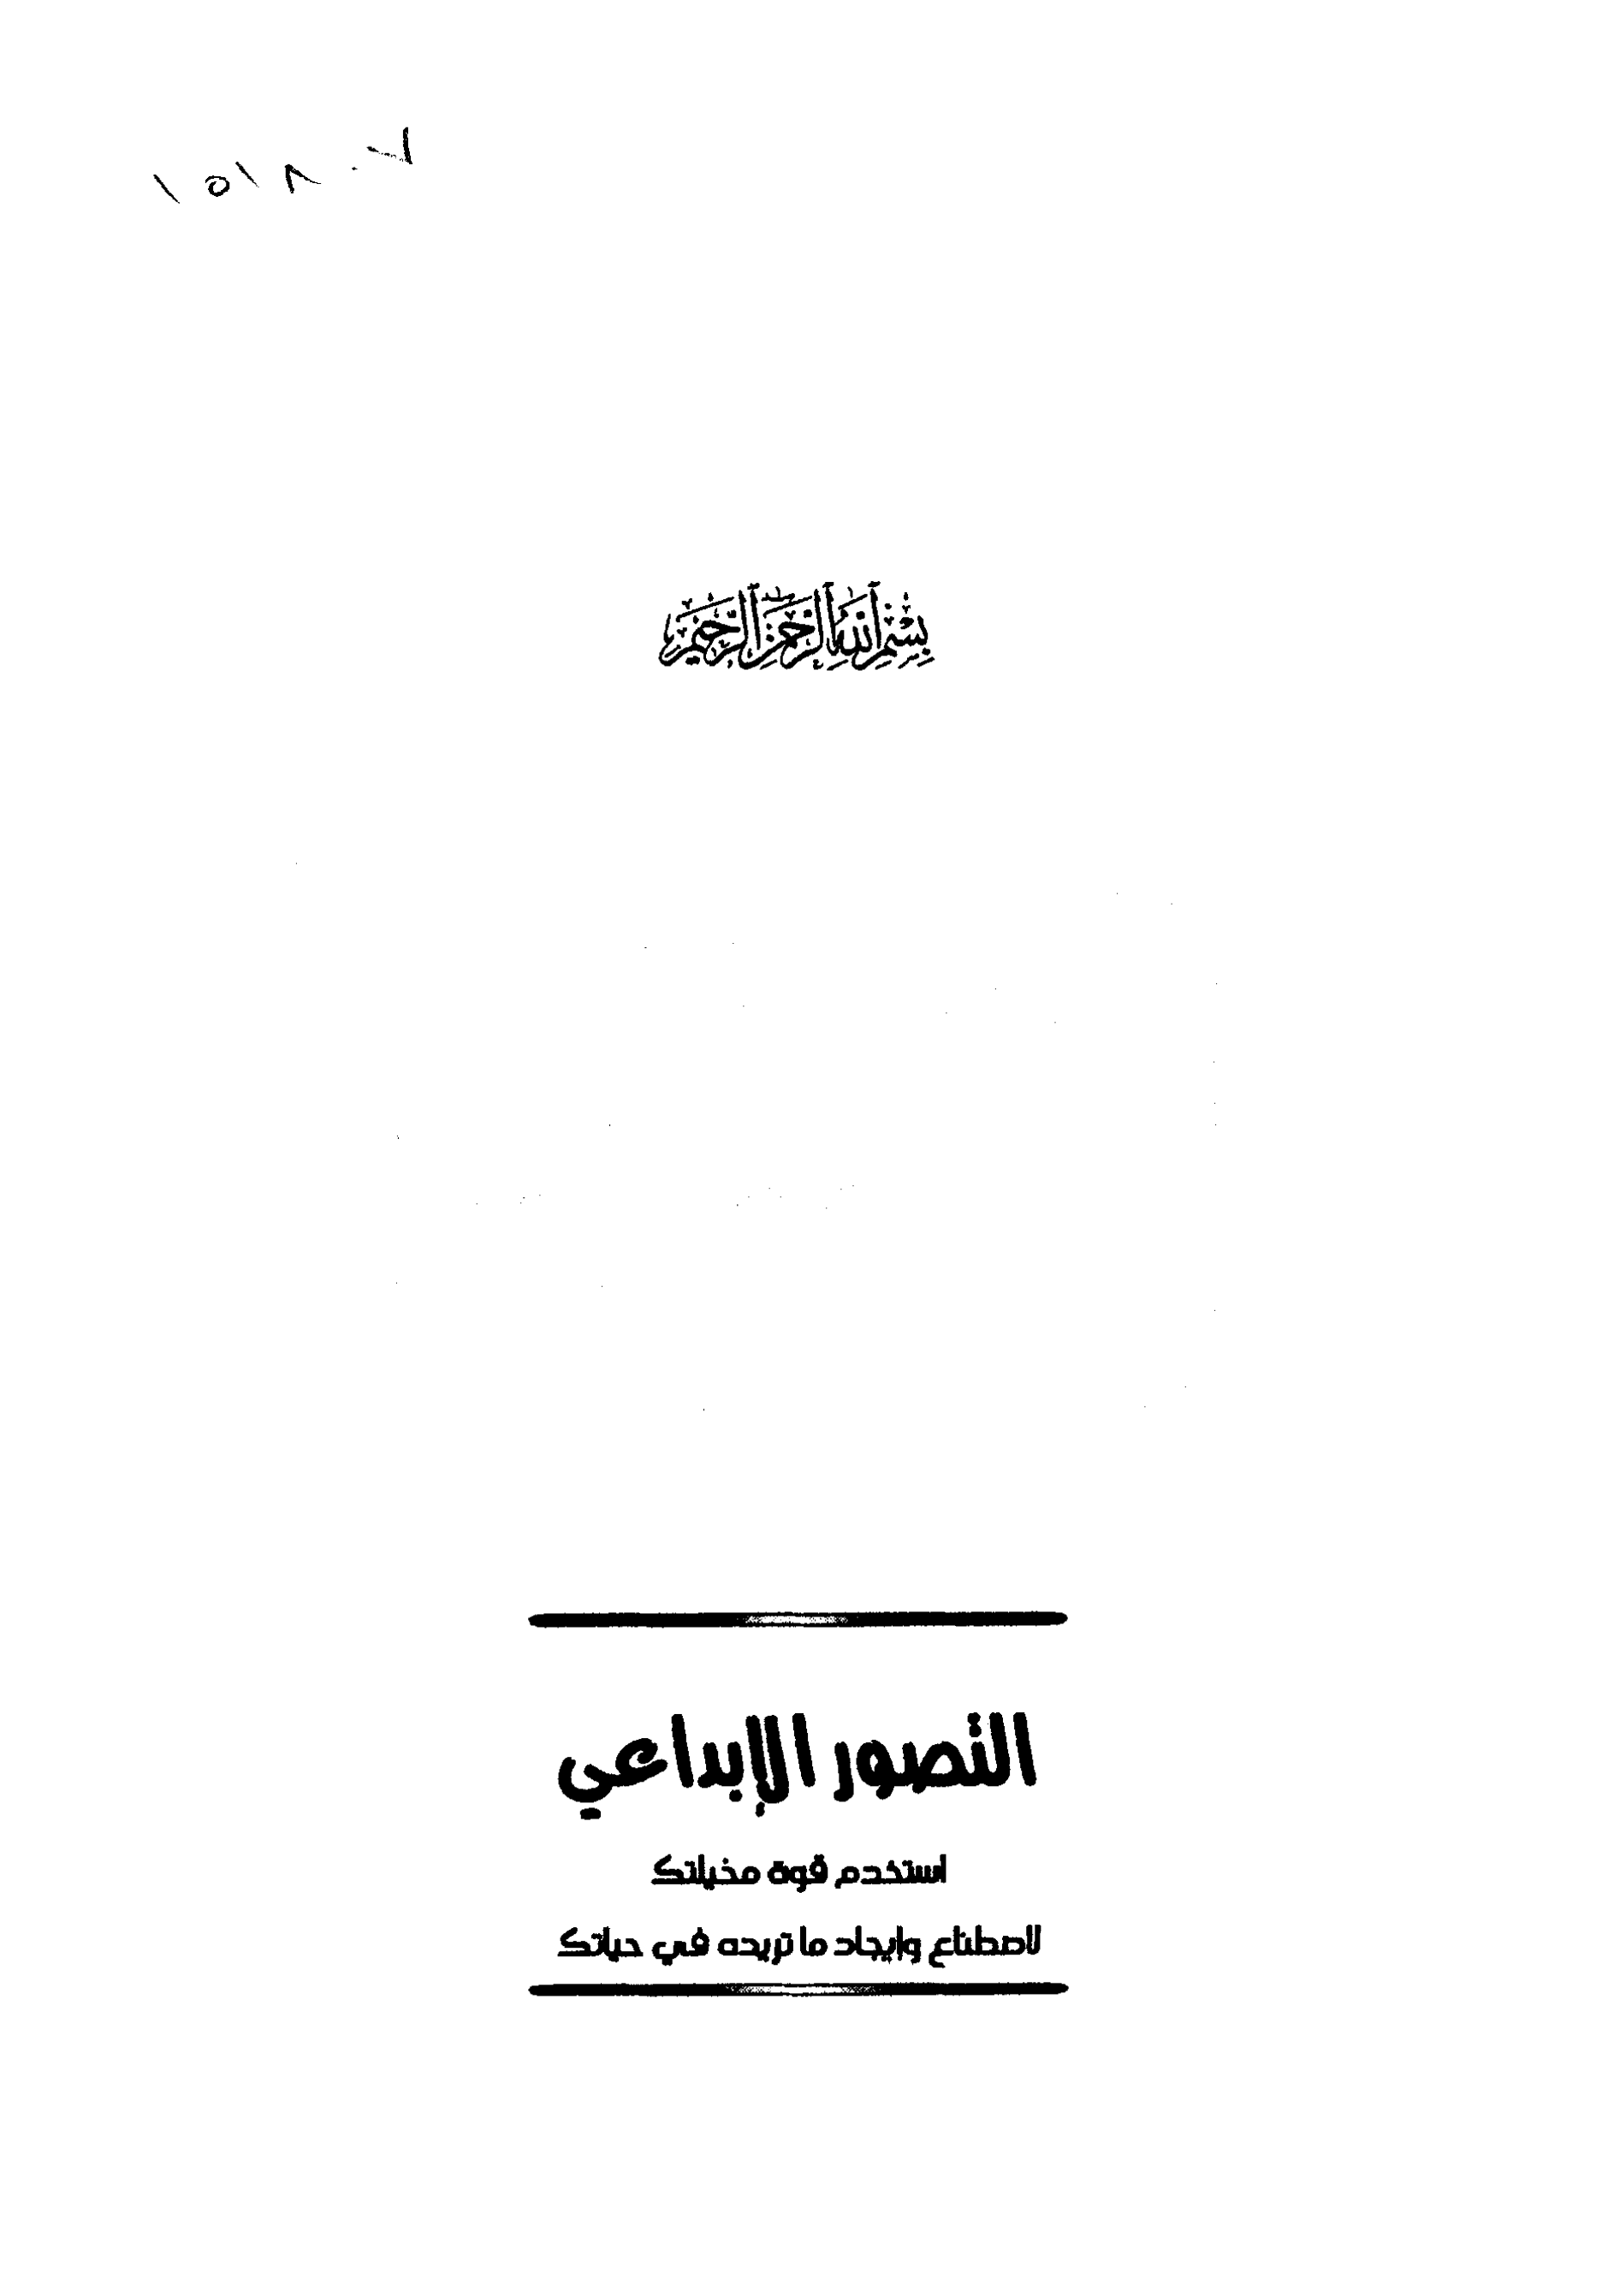 ١٥١٨٠٧
بِسْمِ اللَّهِ الرَّحْمَٰنِ الرَّحِيمِ
التصور الإبداعي
استخدم قوة مخيلتك
لاصطناع وإيجاد ما تريده في حياتك